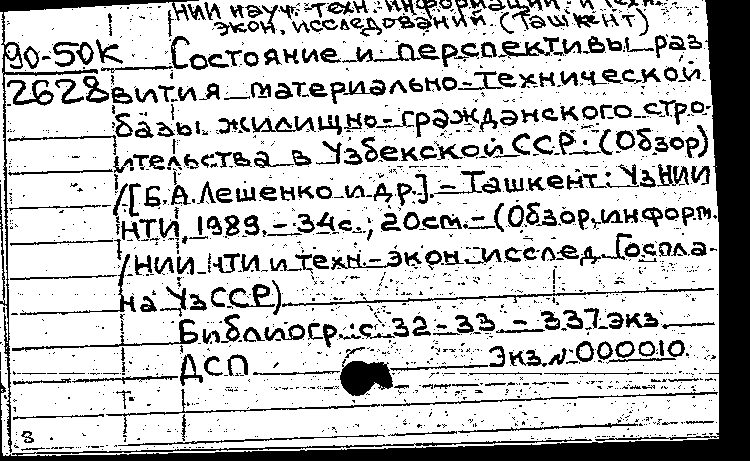 НИИ науч.-техн. информации и техн.-
экон. исследований. (Ташкент)
90-50К Состояние и перспективы раз
2628 вития материально-технической
базы жилищно-гражданского стро-
ительства в Узбекской ССР: (Обзор)
/[Б.А.Лещенко и др.].-Ташкент: УзНИИ
НТИ, 1989.-34с.; 20см.-(Обзор.информ.
/НИИ НТИ и техн.-экон. исслед. Госпла-
на УзССР)
Библиогр.:с. 32-33 - 337экз.
ДСП Экз.N 000010
8